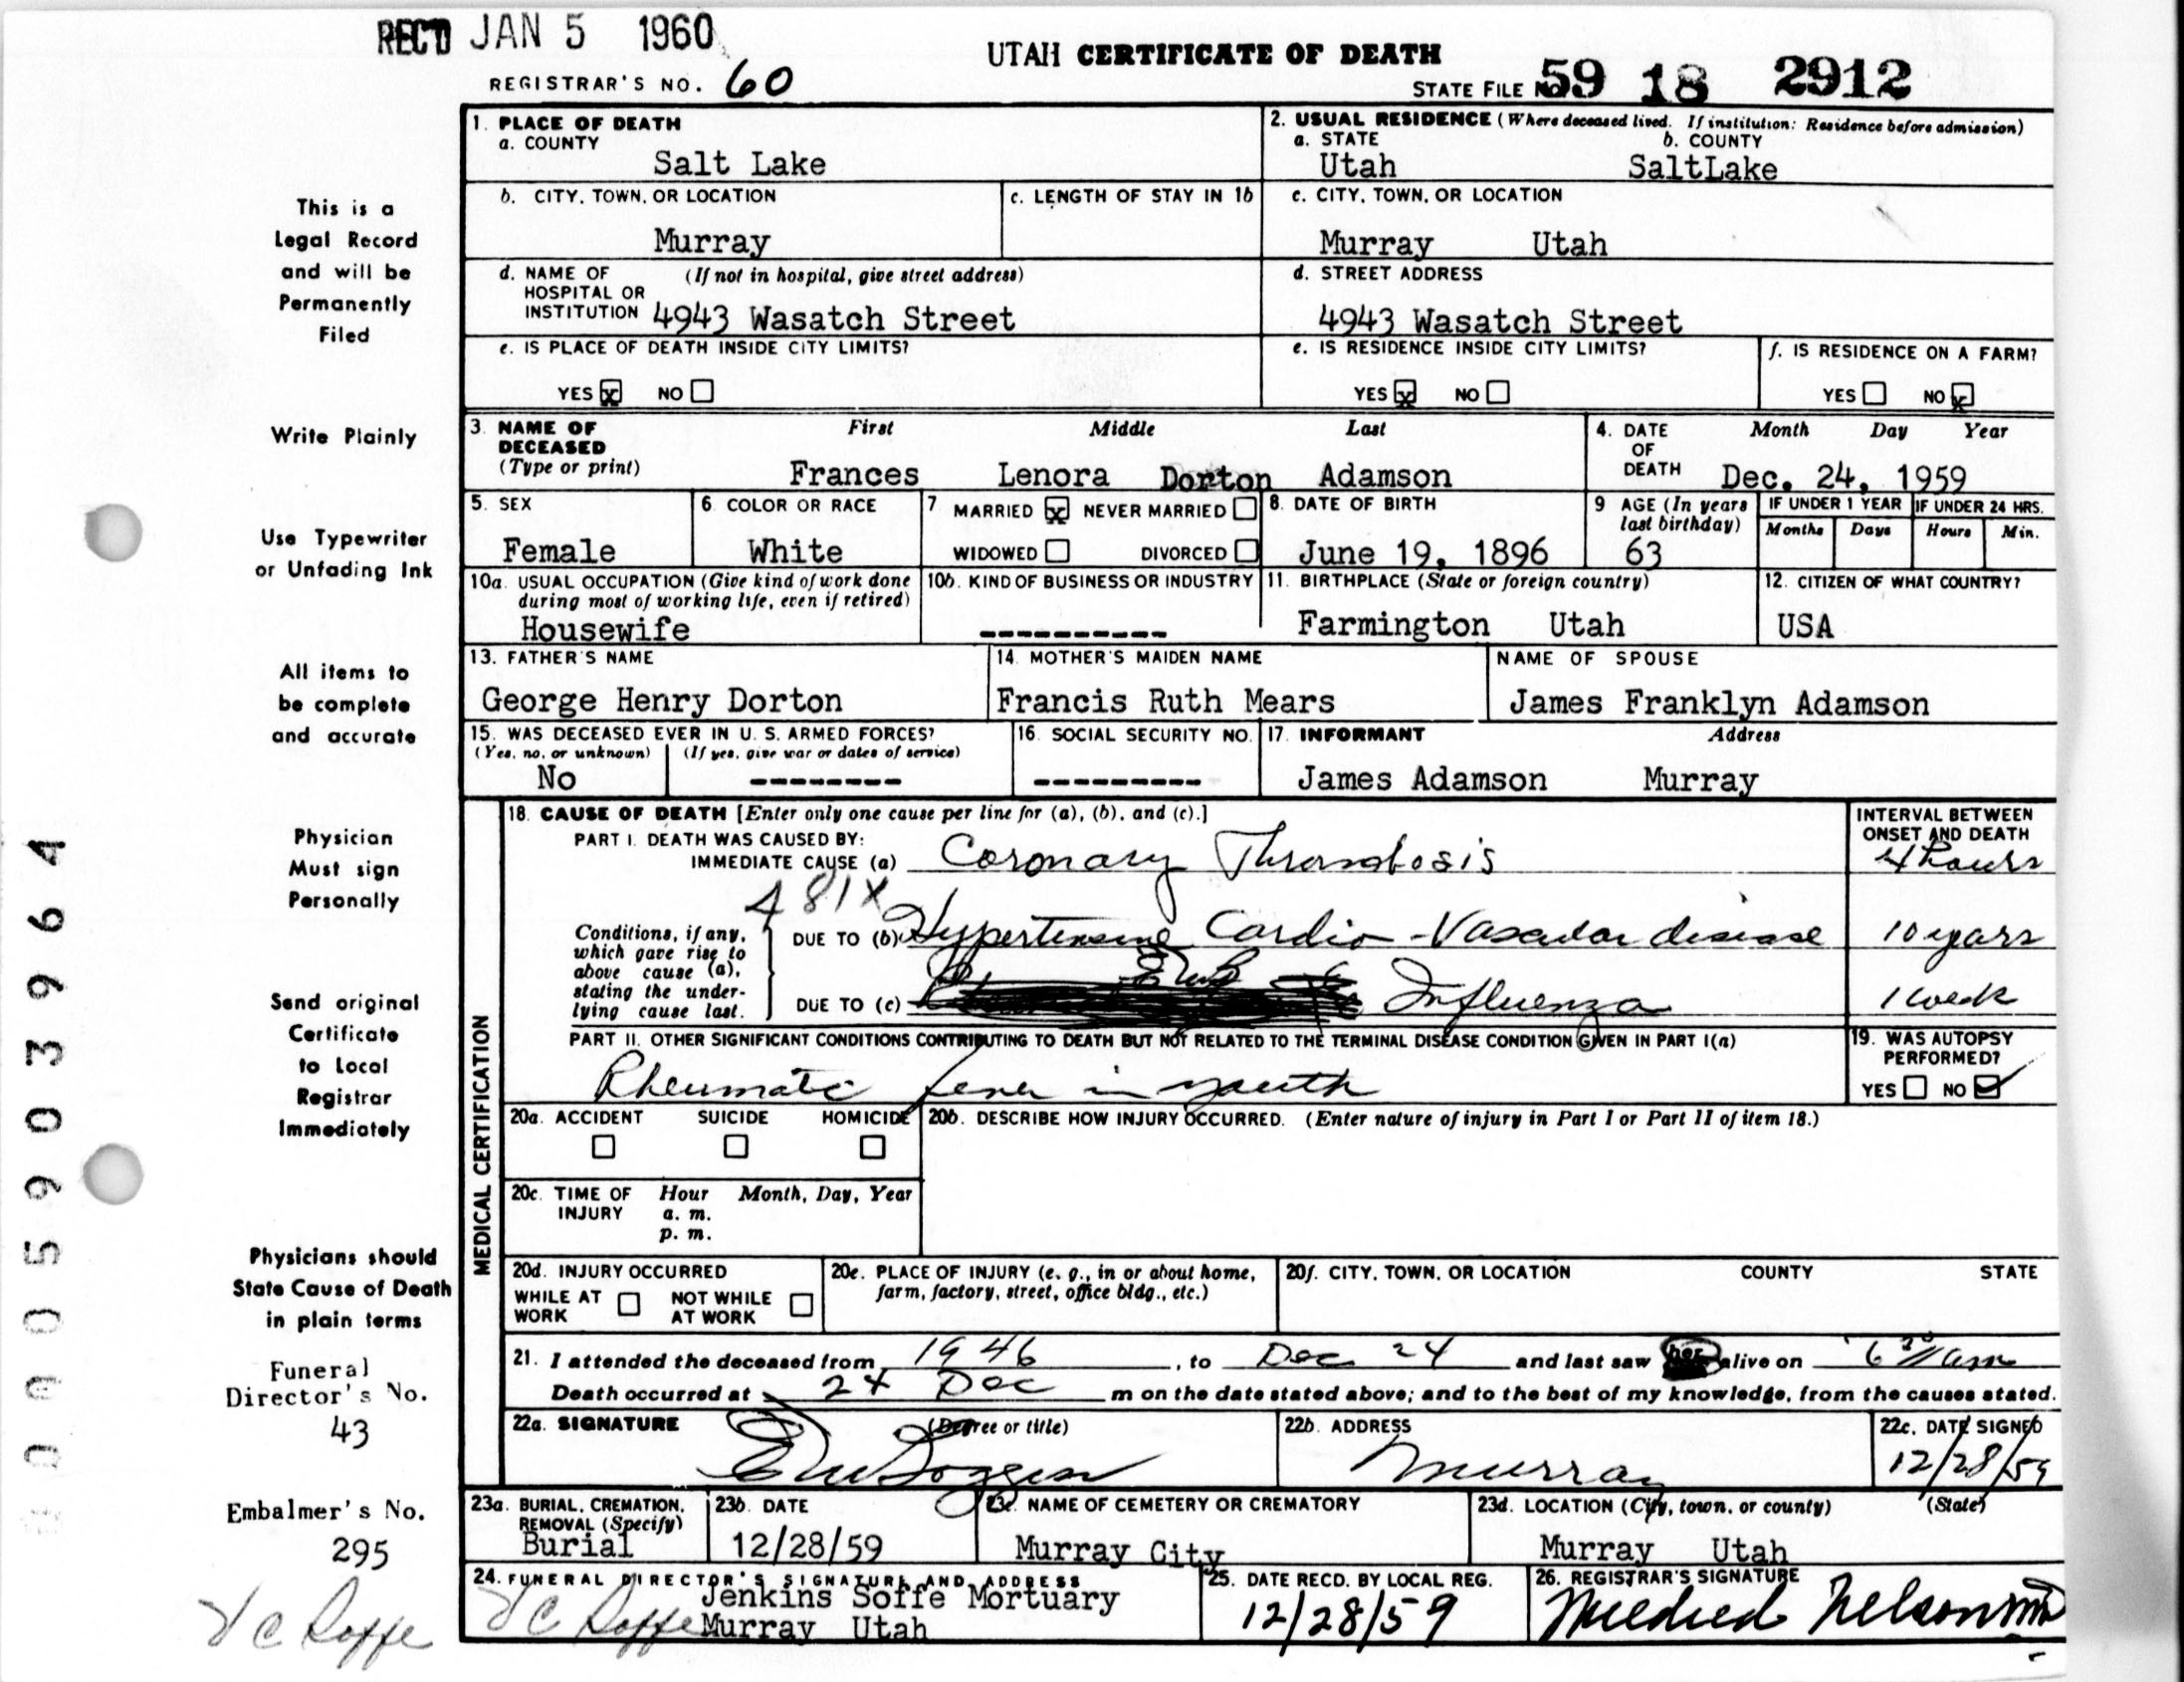 REC'D JAN 5 1960
UTAH CERTIFICATE OF DEATH
REGISTRAR'S NO. 60
STATE FILE NO. 59 18 2912
1. PLACE OF DEATH
a. COUNTY
Salt Lake
2. USUAL RESIDENCE (Where deceased lived. If institution: Residence before admission)
a. STATE b. COUNTY
Utah SaltLake
b. CITY, TOWN, OR LOCATION
Murray
c. LENGTH OF STAY IN 1b
c. CITY, TOWN, OR LOCATION
Murray Utah
d. NAME OF (If not in hospital, give street address)
HOSPITAL OR
INSTITUTION 4943 Wasatch Street
d. STREET ADDRESS
4943 Wasatch Street
e. IS PLACE OF DEATH INSIDE CITY LIMITS?
YES x NO
e. IS RESIDENCE INSIDE CITY LIMITS?
YES x NO
f. IS RESIDENCE ON A FARM?
YES NO x
3. NAME OF DECEASED
(Type or print)
First Middle Last
Frances Lenora Dorton Adamson
4. DATE OF DEATH
Month Day Year
Dec. 24, 1959
5. SEX
Female
6. COLOR OR RACE
White
7 MARRIED x NEVER MARRIED
WIDOWED DIVORCED
8. DATE OF BIRTH
June 19, 1896
9 AGE (In years
last birthday)
63
IF UNDER 1 YEAR
Months Days
IF UNDER 24 HRS.
Hours Min.
10a. USUAL OCCUPATION (Give kind of work done
during most of working life, even if retired)
Housewife
10b. KIND OF BUSINESS OR INDUSTRY
----------
11. BIRTHPLACE (State or foreign country)
Farmington Utah
12. CITIZEN OF WHAT COUNTRY?
USA
13. FATHER'S NAME
George Henry Dorton
14. MOTHER'S MAIDEN NAME
Francis Ruth Mears
NAME OF SPOUSE
James Franklyn Adamson
15. WAS DECEASED EVER IN U. S. ARMED FORCES?
(Yes, no, or unknown) (If yes, give war or dates of service)
No --------
16. SOCIAL SECURITY NO.
---------
17. INFORMANT Address
James Adamson Murray
MEDICAL CERTIFICATION
18. CAUSE OF DEATH [Enter only one cause per line for (a), (b), and (c).]
PART I. DEATH WAS CAUSED BY:
IMMEDIATE CAUSE (a) Coronary Thrombosis
INTERVAL BETWEEN
ONSET AND DEATH
4 hours
481X
Conditions, if any,
which gave rise to
above cause (a),
stating the under-
lying cause last.
DUE TO (b) Hypertensive Cardio-Vascular disease
10 years
DUE TO (c) Influenza
1 week
PART II. OTHER SIGNIFICANT CONDITIONS CONTRIBUTING TO DEATH BUT NOT RELATED TO THE TERMINAL DISEASE CONDITION GIVEN IN PART I(a)
Rheumatic fever in youth
19. WAS AUTOPSY
PERFORMED?
YES NO ✓
20a. ACCIDENT SUICIDE HOMICIDE
20b. DESCRIBE HOW INJURY OCCURRED. (Enter nature of injury in Part I or Part II of item 18.)
20c. TIME OF INJURY
Hour Month, Day, Year
a. m.
p. m.
20d. INJURY OCCURRED
WHILE AT WORK NOT WHILE AT WORK
20e. PLACE OF INJURY (e. g., in or about home,
farm, factory, street, office bldg., etc.)
20f. CITY, TOWN, OR LOCATION COUNTY STATE
21. I attended the deceased from 1946, to Dec 24 and last saw her alive on 6 30 am
Death occurred at 24 Dec m on the date stated above; and to the best of my knowledge, from the causes stated.
22a. SIGNATURE (Degree or title)
22b. ADDRESS
Murray
22c. DATE SIGNED
12/28/59
23a. BURIAL, CREMATION,
REMOVAL (Specify)
Burial
23b. DATE
12/28/59
23c. NAME OF CEMETERY OR CREMATORY
Murray City
23d. LOCATION (City, town, or county) (State)
Murray Utah
24. FUNERAL DIRECTOR'S SIGNATURE AND ADDRESS
Jenkins Soffe Mortuary
Murray Utah
25. DATE RECD. BY LOCAL REG.
12/28/59
26. REGISTRAR'S SIGNATURE
Mildred Nelson
This is a
Legal Record
and will be
Permanently
Filed
Write Plainly
Use Typewriter
or Unfading Ink
All items to
be complete
and accurate
Physician
Must sign
Personally
Send original
Certificate
to Local
Registrar
Immediately
Physicians should
State Cause of Death
in plain terms
Funeral
Director's No.
43
Embalmer's No.
295